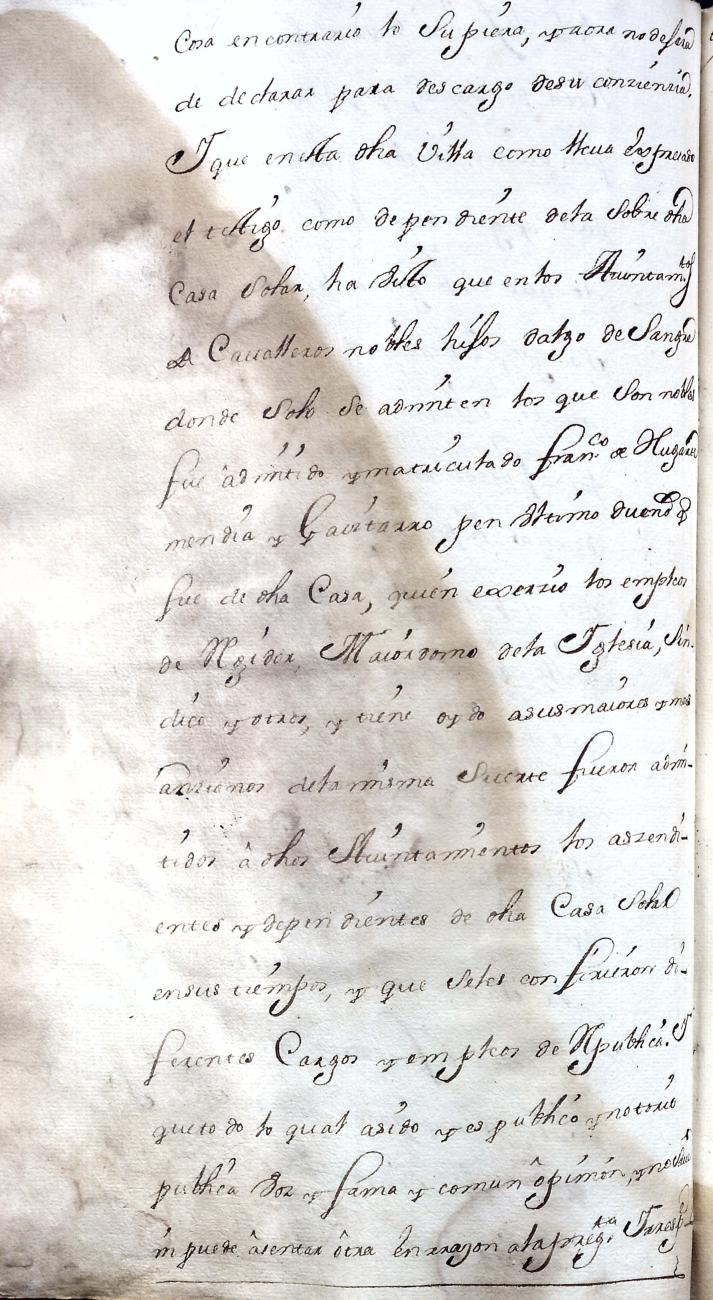 Cosa encontrario lo Supiera, y aora nodesera
de declarar para descargo desu conziènzia.
Y que enesta dha Villa como lleva expresado
el testigo como dependiènte dela Sobre dha
Casa Solar, ha visto que enlos Aiùntam.tos
de Cavalleros nobles hijos dalgo de Sangre
donde Solo Se admiten los que Son nobles
fue âdmitido y matriculado fran.co de
mendia y Gavitarro penultimo dueño q
fue de dha Casa, quièn exerzio los empleos
de Rexidor, Maiòrdomo dela Yglesia, Sin-
dico y otros, y tiène oydo asusmaiòres y mas
anzianos dela misma Suerte fueron admi-
tidos â dhos Aiùntamientos los aszendi-
entes y dependièntes de dha Casa Solar
ensus tièmpos, y que Seles confirièron di-
ferentes Cargos y empleos de Republica. Y
quetodo lo qual asido y es publico y notorio
publica voz y fama y comun ôpiniòn, y
ni puede âsentar ôtra enrrazon ala preg.ta Y